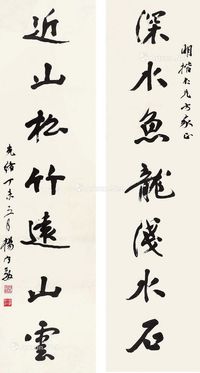 明揩大兄方家正
深水魚龍淺水石
近山松竹遠山雲
光緒丁未五月楊守敬